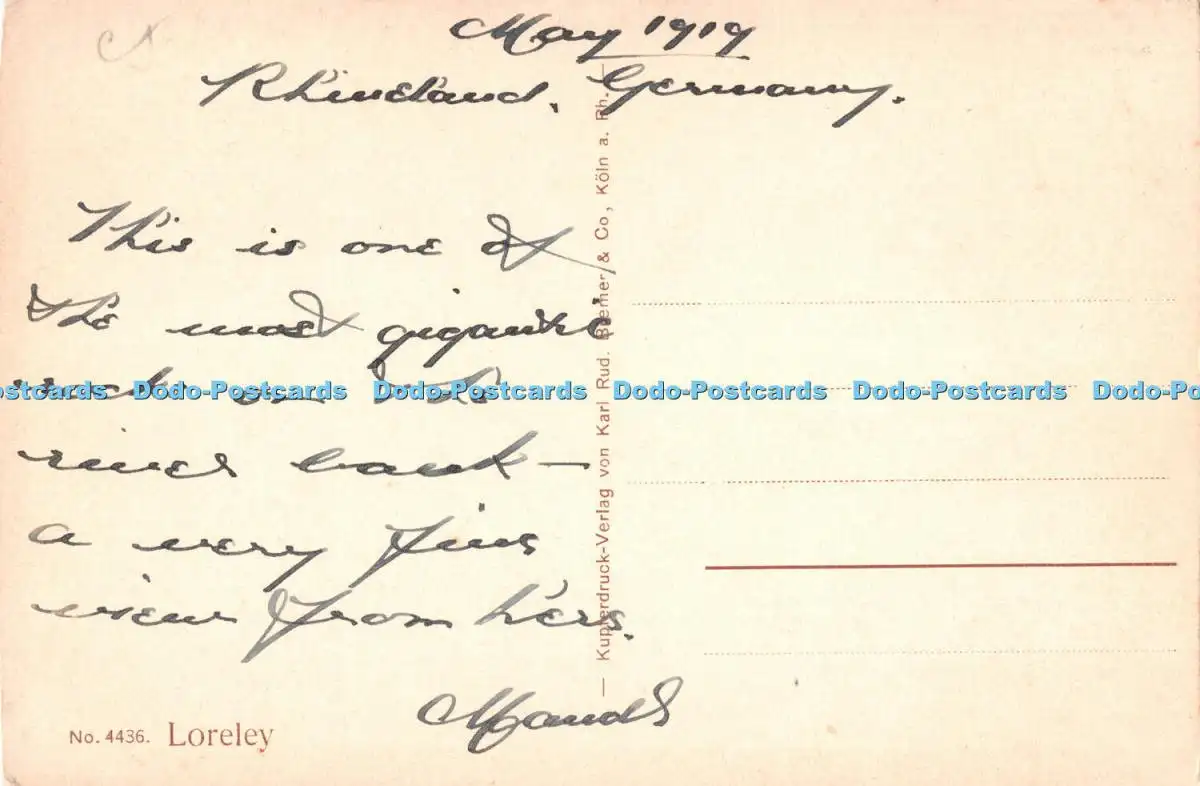 May 1919
Rhineland. Germany.
This is one of
the most gigantic
rocks on the
river bank —
a very fine
view from here.
Maude
No. 4436. Loreley
— Kupferdruck-Verlag von Karl Rud. Bremer & Co, Köln a. Rh. —
Dodo-Postcards Dodo-Postcards Dodo-Postcards Dodo-Postcards Dodo-Postcards